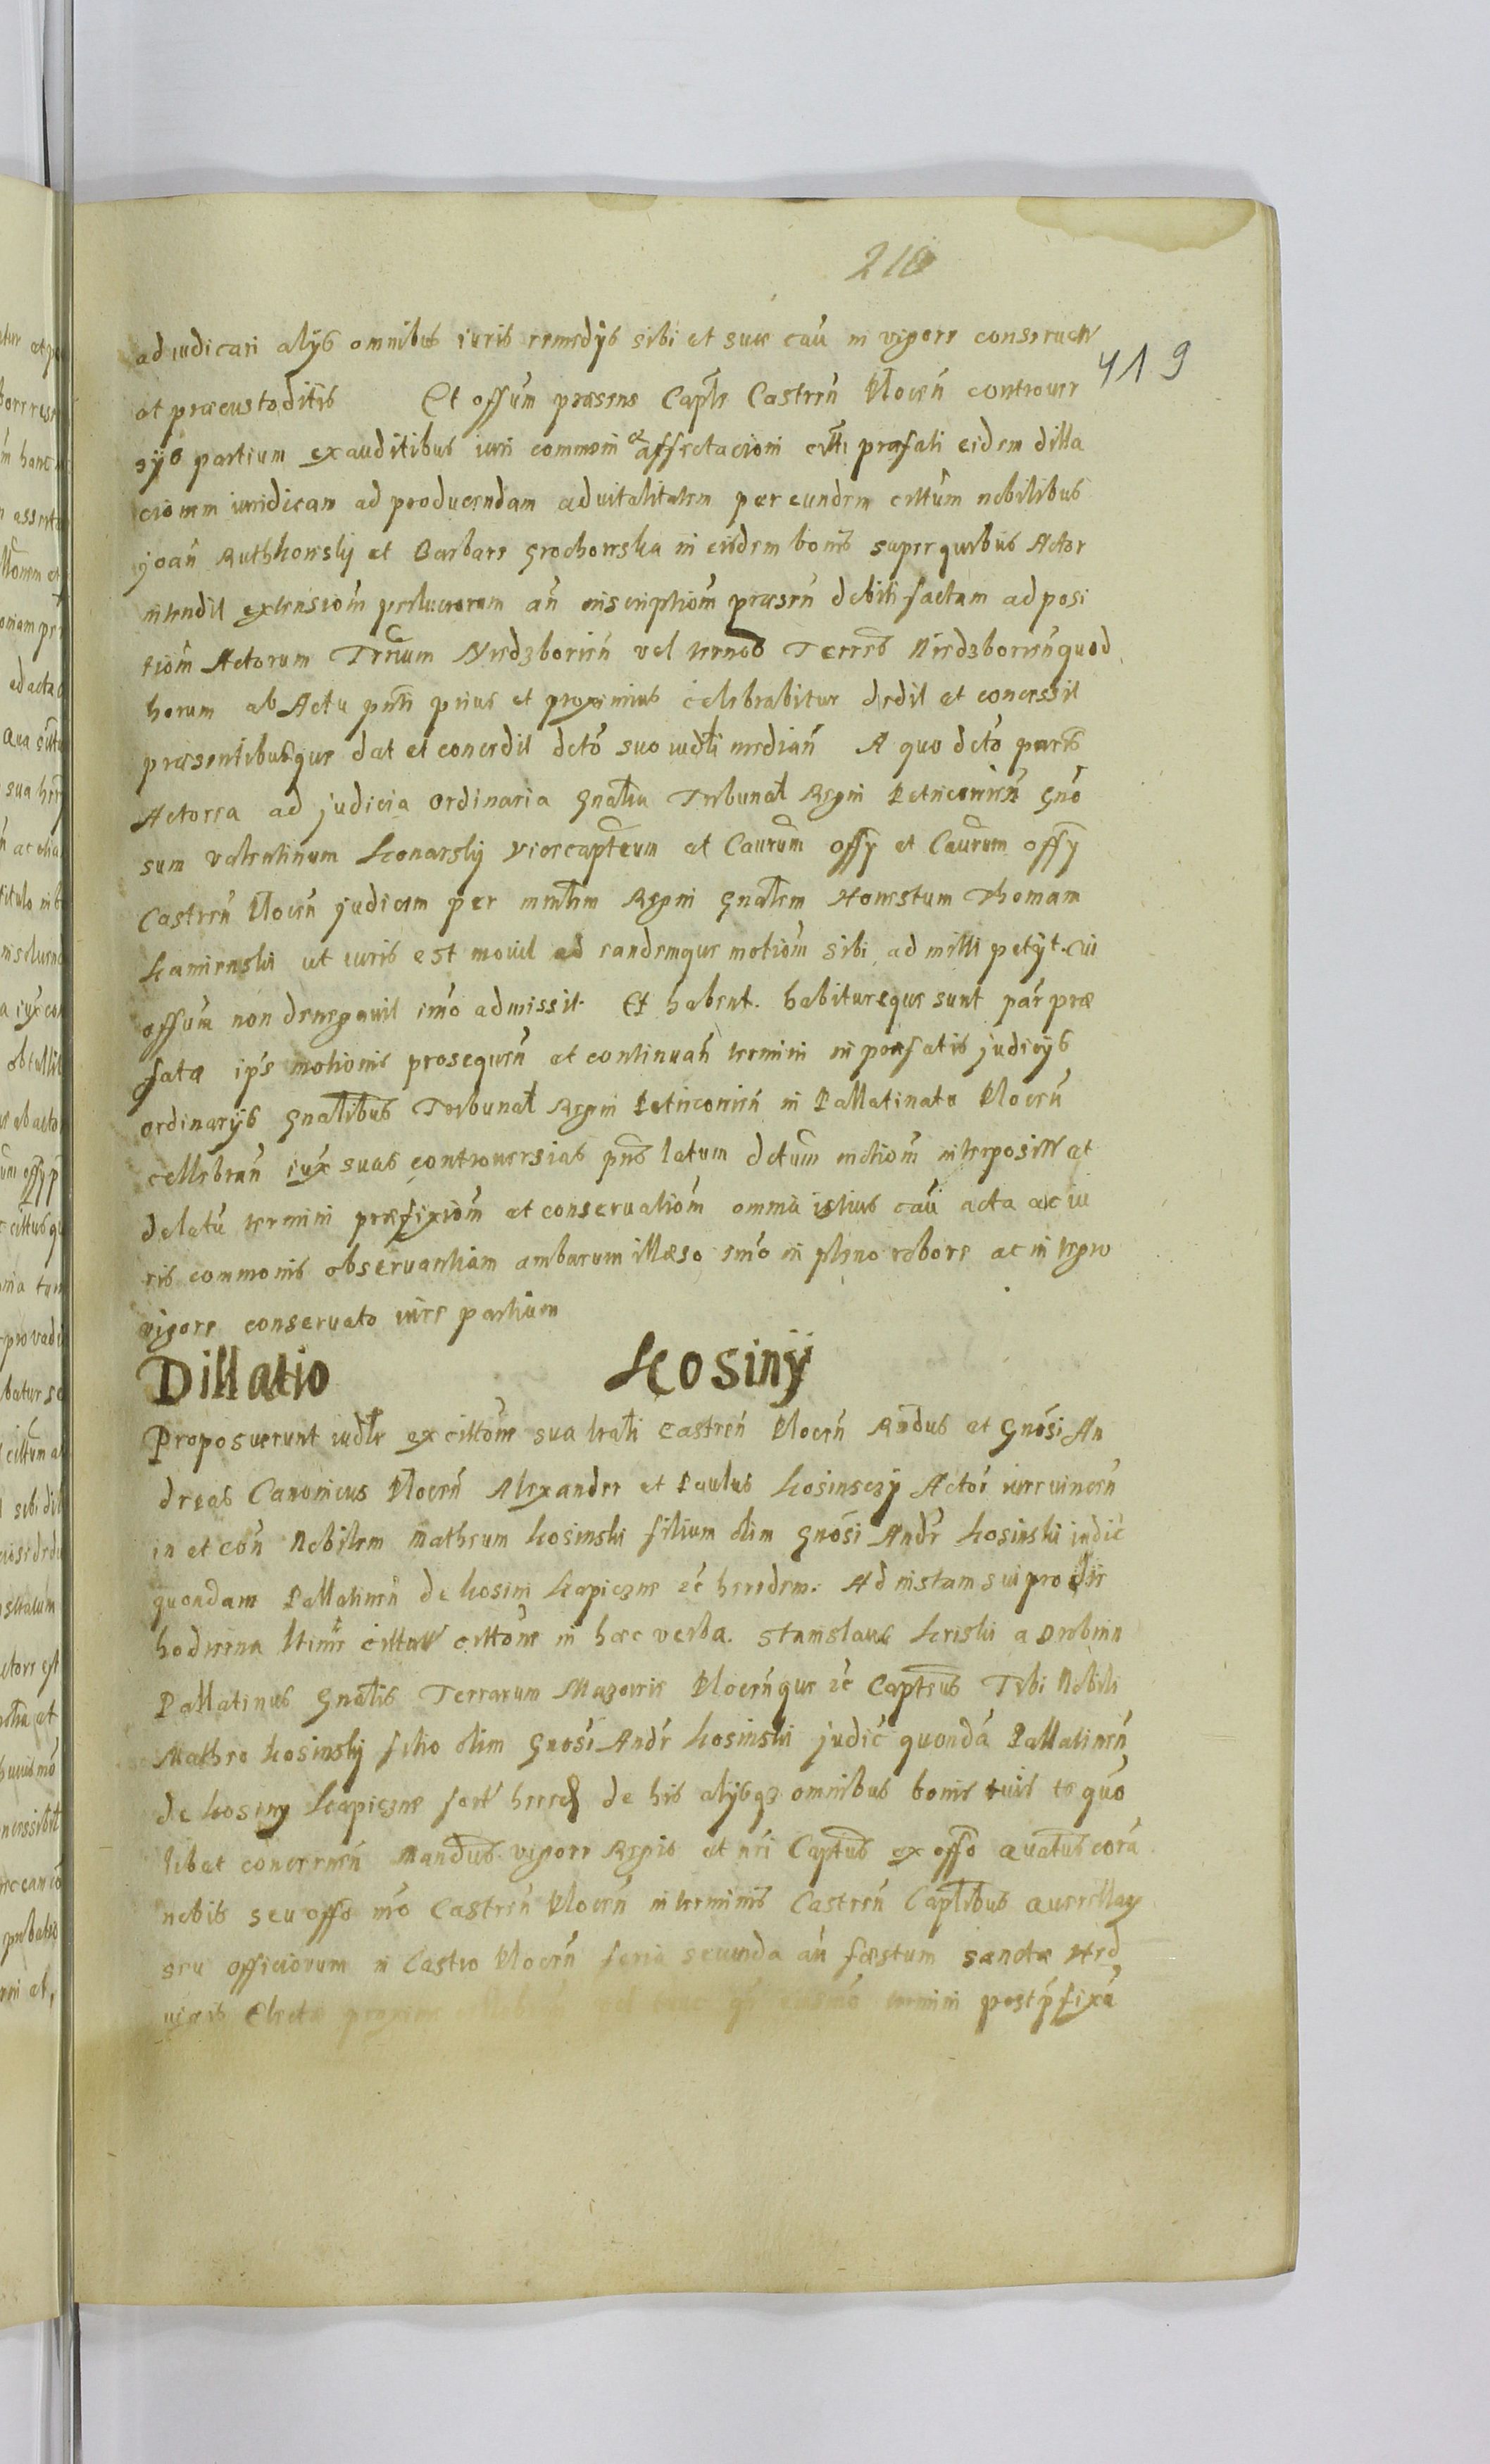 210
419
adiudicari alijs omnibus iuris remedijs sibi et suae cau in vigore conservat
et praecustoditis Et offum praesens Captle Castren Plocen controver
sijs partium exauditibus iuri commoni et affectacioni citti praefati eidem dilla
cionem iuridicam ad producendam advitalitatem per eundem cittum nobilibus
joan Ruthkowsky et Barbare Grochowska in eisdem bonis super quibus Actor
intendit extensiom perlucrorum an inscriptiom praesen debiti factam ad posi
tiom Actorum Trium Niedzborien vel termos Terres Niedzborien quod
horum ab Actu pnti prius et proximius celebrabitur dedit et concessit
praesentibusque dat et concedit deto suo iudli median A quo deto pars
Actorea ad judicia ordinaria Gnalia Tribunal Regni Petricovien Gno
sum valentinum Konarsky vicecapteum et Caurum offy et Caurum offy
Castren Plocen judicem per mintlem Regni Gnalem Honestum Thomam
Kamienski ut iuris est movit ad eandemque motiom sibi admitti petyt. cui
offum non denegavit imo admissit. Et habent. habitureque sunt par prae
fatae ips motionis prosequen et continuan termini in praefatis judicijs
ordinarijs Gnalibus Tribunal Regni Petricovien in Pallatinatu Plocen
cellebran iux suas controversias pns latum detum motiom interposit et
delatu termini praefixiom et conservatiom omnia istius cau acta ac iu
ris commonis observantiam ambarum illaeso imo in pleno robore ac integro
vigore conservato iure partium
Dillatio Kosiny
Proposuerunt iudle ex cittone sua trali Castren Plocen Rndus et Gnosi An
dreas Canonicus Plocen Alexander et Paulus Kosinsczy Actor iure vincen
in et con Nobilem Matheum Kosinski filium olim Gnosi Andr Kosinski judic
quondam Pallatinen de Kosini Kapiczne ec heredem. Ad instam sui pro die
hodierna cittat cittone in haec verba. Stanislaus Kriski a Drobnin
Pallatinus Gnalis Terrarum Mazovie Plocenque ec Capteus Tibi Nobili
Matheo Kosinsky filio olim Gnosi Andr Kosinski judic quonda Pallatinen
de Kosiny Kapiczne hered de his alijsqz omnibus bonis tuis te quo
libet concernen Mandus. vigore Regis et nri Captus ex offo quatus cora
nobis seu offo nro Castren Plocen in terminis Castren Captlibus querellay
seu officiorum in Castro Plocen feria secunda an faestum sanctae Hed
vigis Electae proxime termini post pfixa